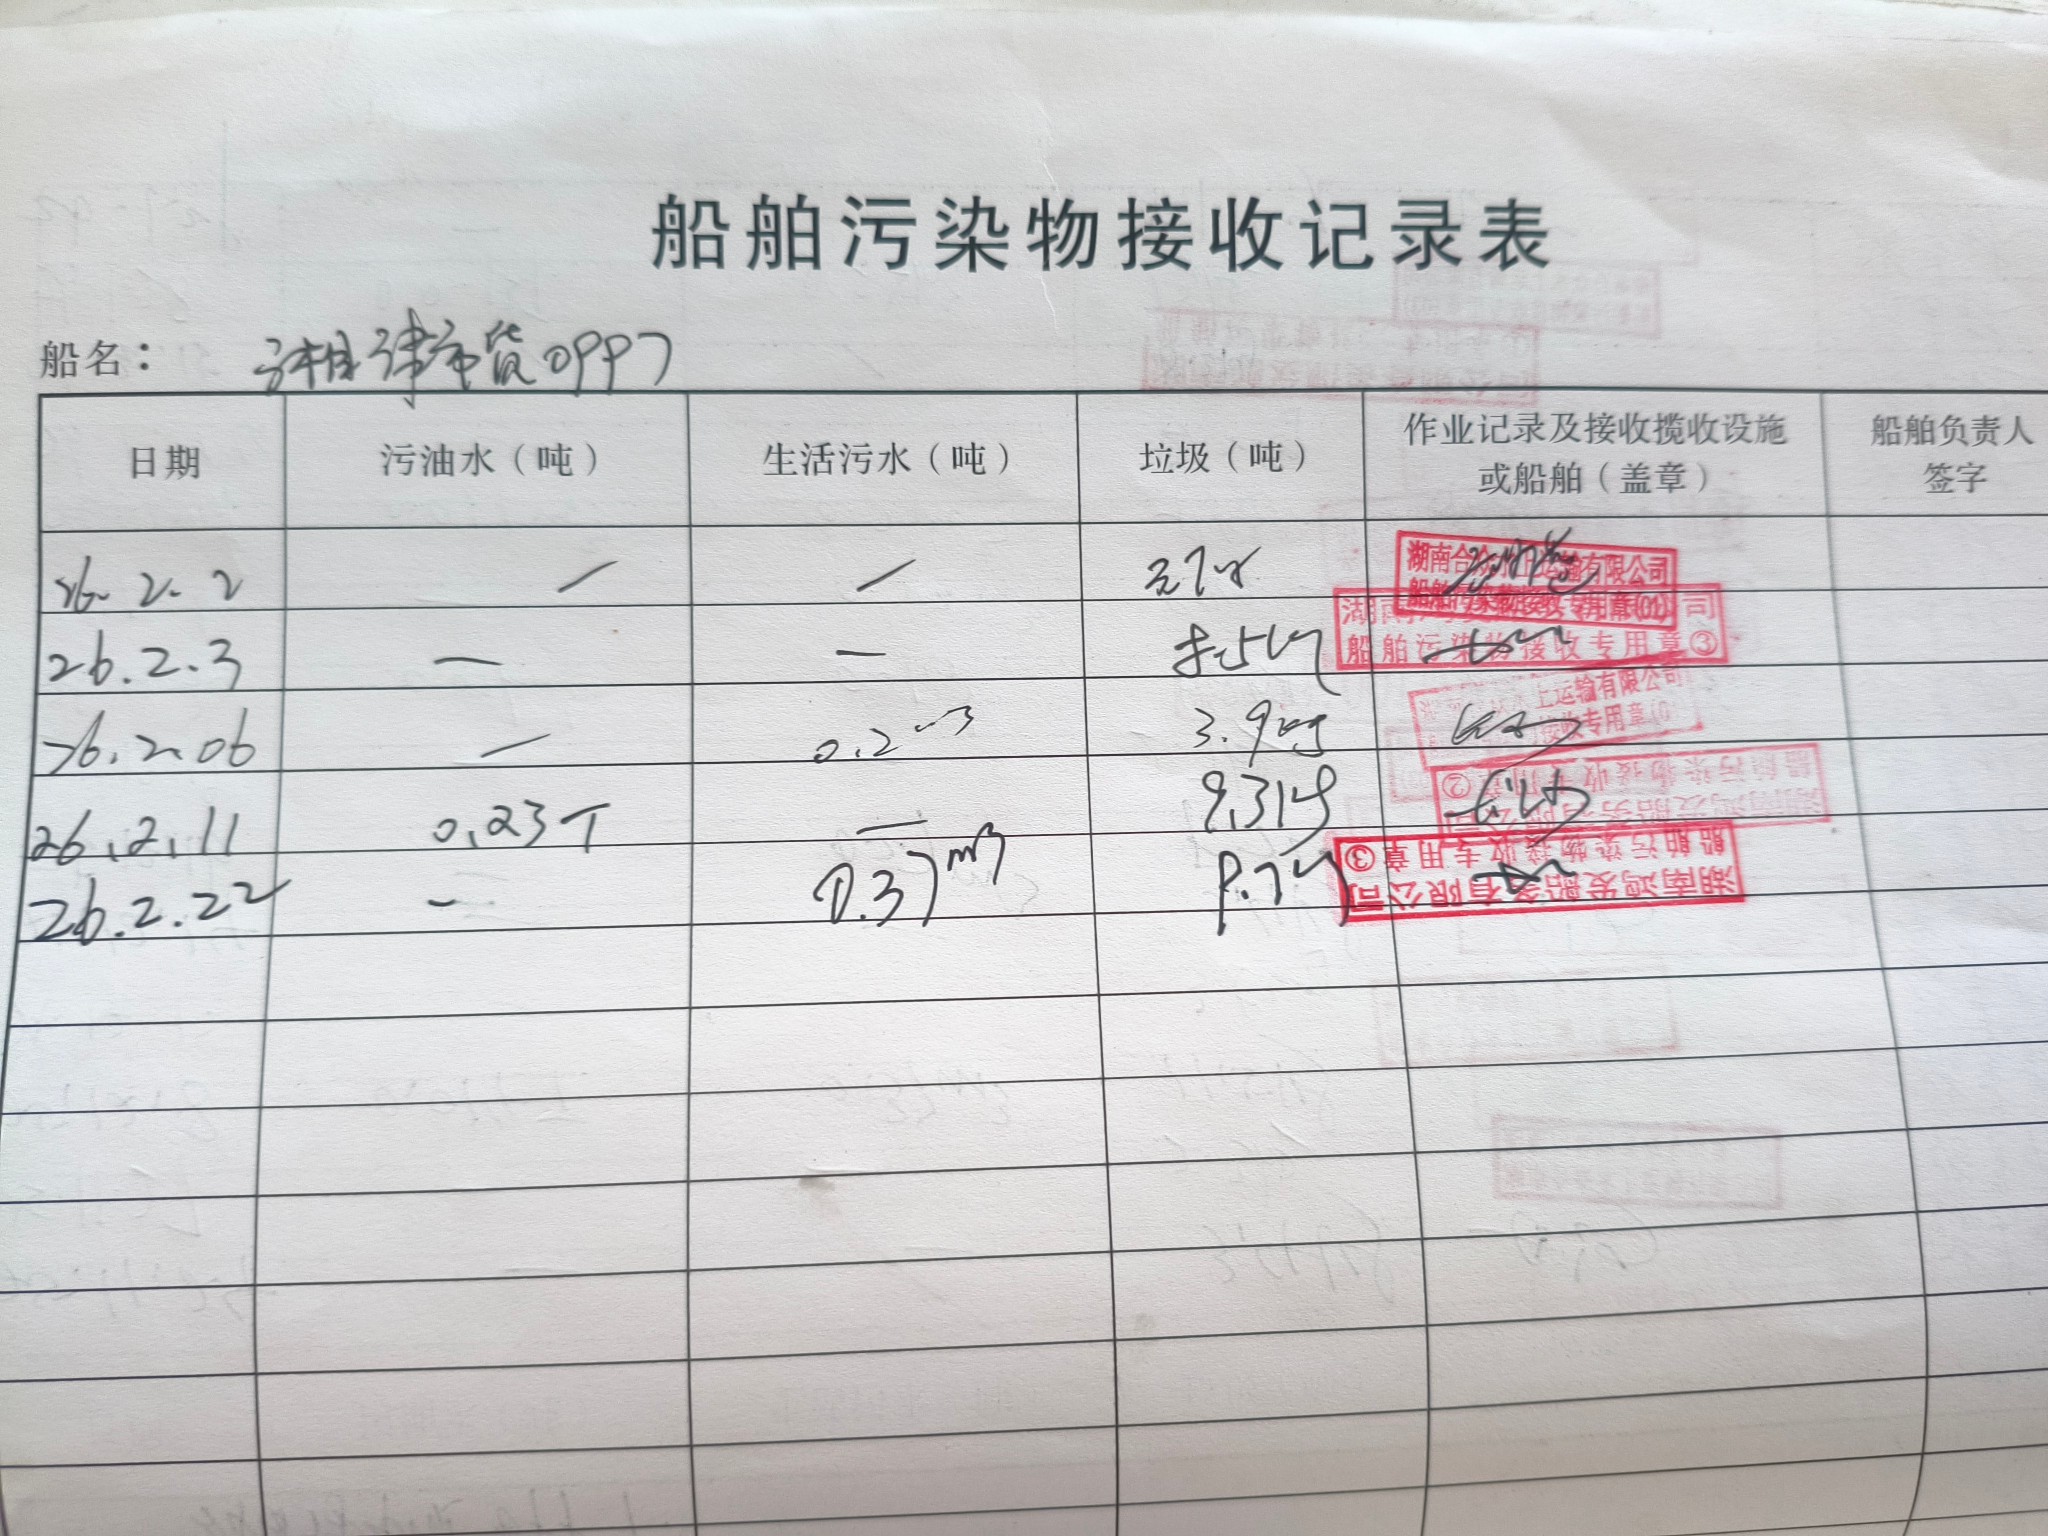 船舶污染物接收记录表
船名： 湘津市货0997
日期 污油水（吨） 生活污水（吨） 垃圾（吨） 作业记录及接收揽收设施或船舶（盖章） 船舶负责人签字
26.2.2 / /
湖南合众水上运输有限公司
船舶污染物接收专用章(01)
26.2.3 — —
船舶污染物接收专用章③
26.2.06 — 0.2m3 3.9kg
上运输有限公司
接收专用章(0
26.2.11 0.23T — 9.3kg
船舶污染物接收专用章②
湖南鸿发船务有限公司
26.2.22 - 0.37m3
船舶污染物接收专用章③
湖南鸿发船务有限公司